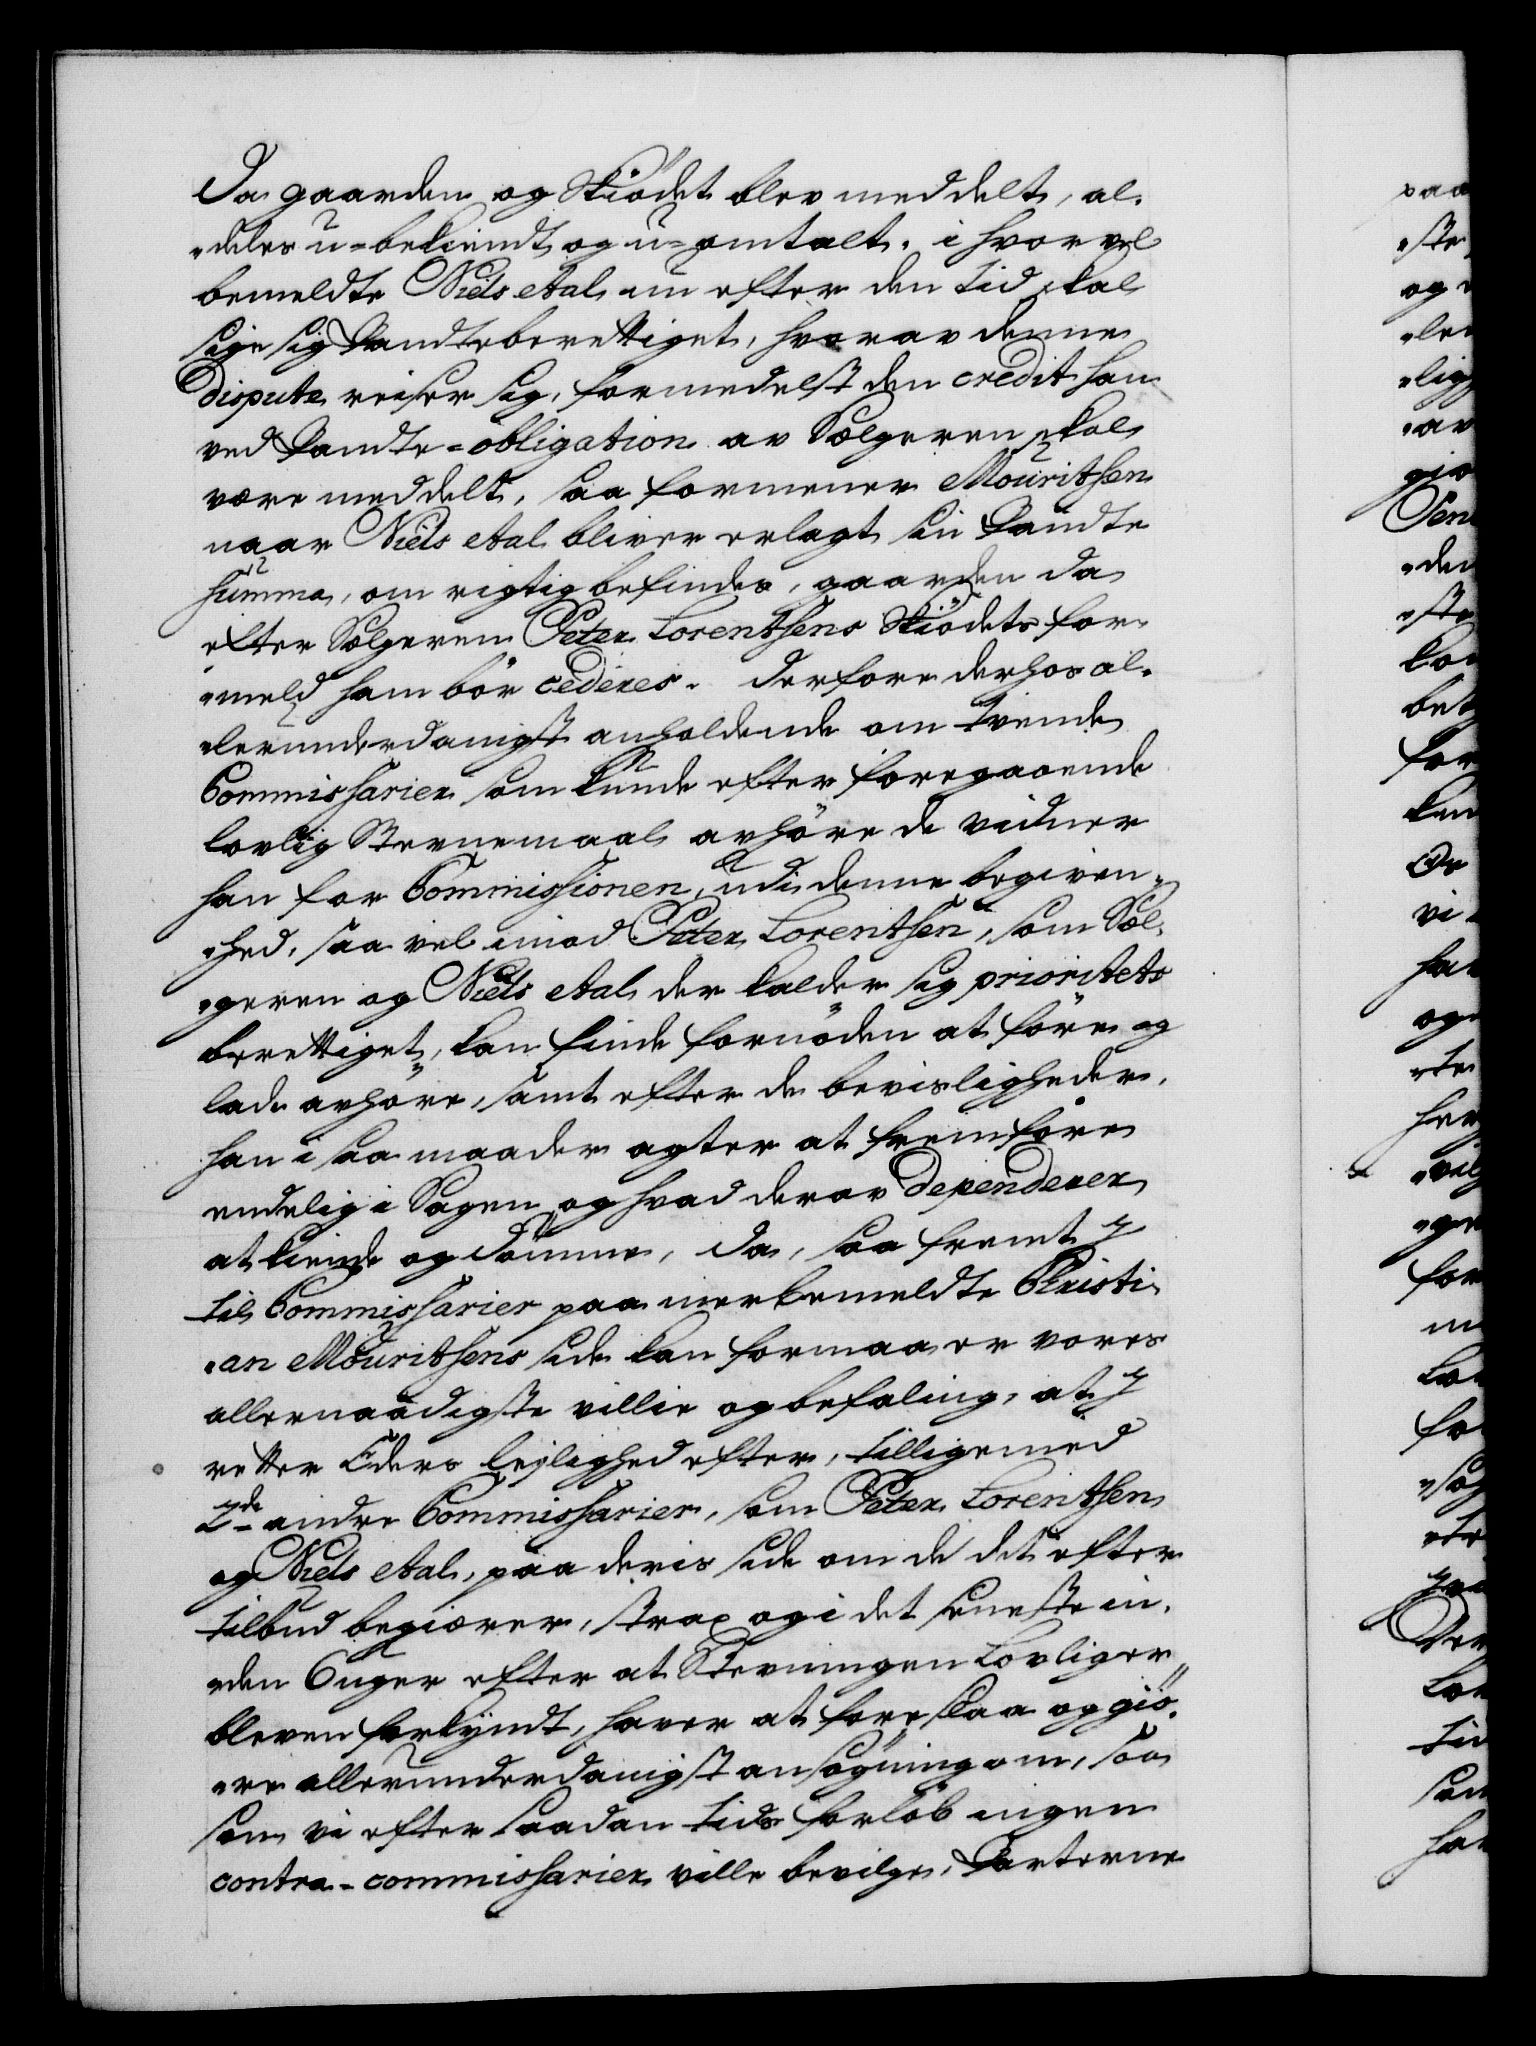 Da gaarden og Skiödet blev meddelt, al-
„deles u-bekiendt og u-omtalt. i hvorvel
bemeldte Niels Aal nu efter den tid skal
sige sig Pandteberettiget, hvorav denne
dispute reiser sig, formedelst den credit han
ved Pandte-obligation av Sælgeren skal
være meddelt, saa formener Mouritsen
naar Niels Aal bliver erlagt sin Pandte
summa, om rigtig befindes, gaarden da
efter Sælgeren Peter Lorentsens Skiödets for-
„meld ham bör cederes. Derfore derhos al-
„lerunderdanigst anholdende om tvende
Commissarier som kunde efter foregaaende
lovlig Stevnemaal avhöre de vidner
han for Commissionen, udi denne begiven-
„hed, saa vel imod Peter Lorentsen, som Sæl-
„geren og Niels Aal der kalder sig prioritets
berettiget, kan finde fornöden at före og
lade avhöre, samt efter de bevisligheder,
han i saa maader agter at fremföre
endelig i Sagen og hvad derav dependerer
at kiende og dömme, da, saa fremt I
til Commissarier paa merbemeldte Christi-
„an Mouritsens side kan formaaes er vores
allernaadigste villie og befaling, at I
retter Eders lejlighed efter, tilligemed
2de andre Commissarier, som Peter Lorentsen
og Niels Aal, paa deris side om de det efter
tilbud begiærer, strax og i det seneste in-
„den 6 uger efter at Stevningen Lovlig er
bleven forkyndt, haver at foreslaa og giö-
„re allerunderdanigst ansögning om, saa
som vi efter saadan tids forlöb ingen
contra-commissarier ville bevilge, Parterne